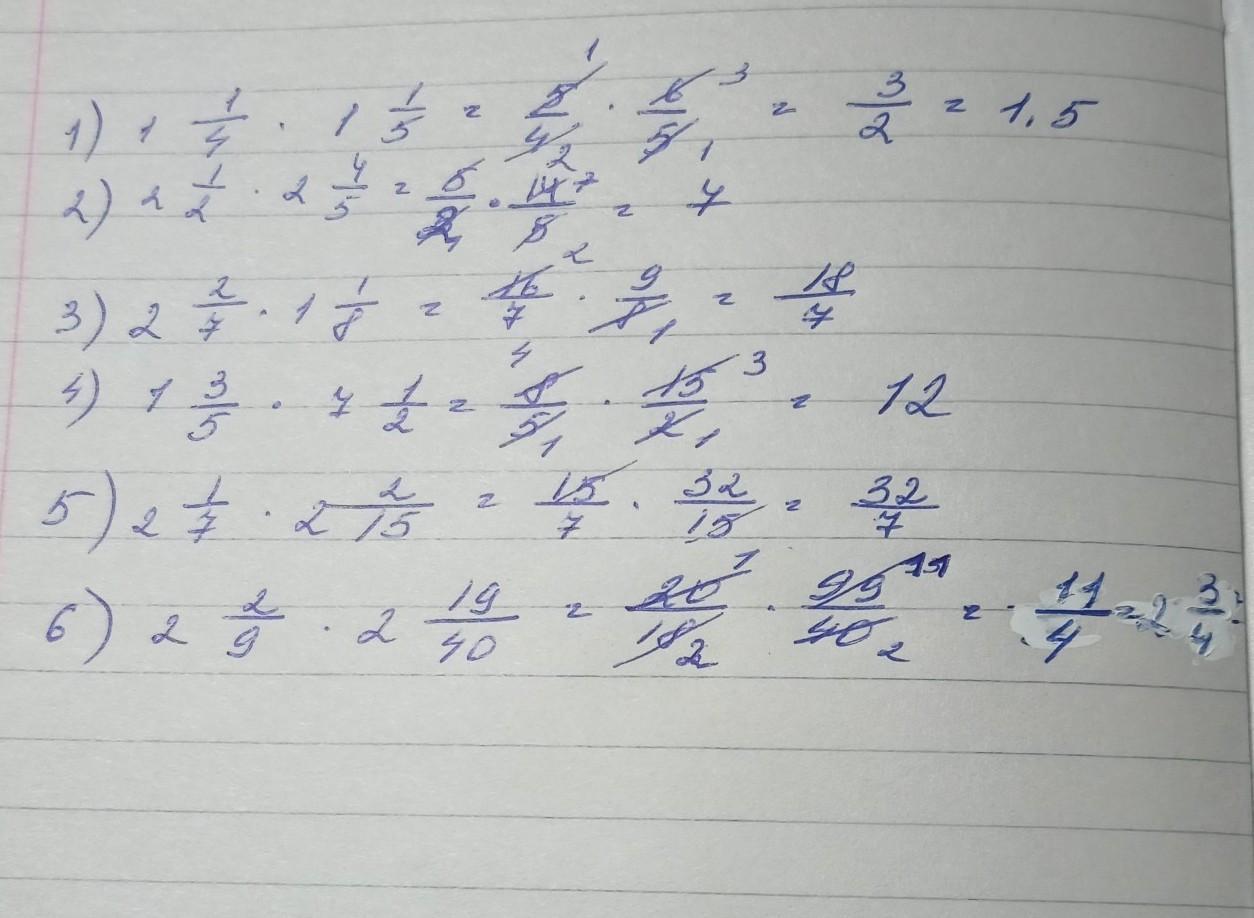 1) 1 1/4 · 1 1/5 = 5/4 · 6/5 = 3/2 = 1.5
2) 2 1/2 · 2 4/5 = 5/2 · 14/5 = 7
3) 2 2/7 · 1 1/8 = 16/7 · 9/8 = 18/7
4) 1 3/5 · 7 1/2 = 8/5 · 15/2 = 12
5) 2 1/7 · 2 2/15 = 15/7 · 32/15 = 32/7
6) 2 2/9 · 2 19/40 = 20/18 · 99/40 = 11/4 = 2 3/4